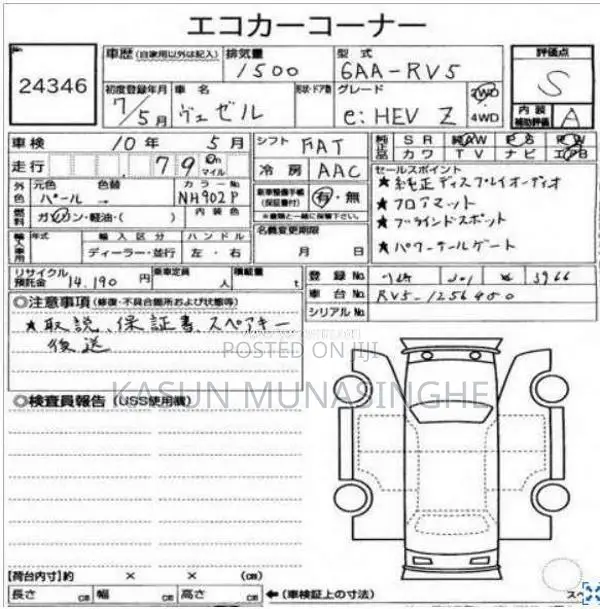 エコカーコーナー
No. 24346
車歴 (自家用以外は記入) 排気量 型式 評価点
1500 6AA-RV5 S
初度登録年月 車名 形状・ドア数 グレード 2WD
7/5月 ヴェゼル e:HEV Z ・4WD 内装補助評価 A
車検 10年 5月 シフト FAT 純正品 SR 純AW PS PW
走行 79 Km マイル 冷房 AAC カワ TV ナビ エアB
外色 元色 色替 カラーNo. 新車整備手帳(保証書付) 有・無 セールスポイント
パール → NH902P ※書類と一緒に保管下さい。 ★純正ディスプレイオーディオ
燃料 ガソリン・軽油・( ) 内装色 名義変更期限 ★フロアマット
輸入車用 年式 輸入区分 ハンドル 月 日 ★ブラインドスポット
ディーラー・並行 左・右 ★パワーテールゲート
リサイクル預託金 14,190円 乗車定員 人 積載量 t 登録No. 3966
車台No. RV5-1256400
シリアルNo.
◎注意事項 (修復・不具合箇所および状態等)
★取説、保証書、スペアキー
後送
POSTED ON IJI
KASUN MUNASINGHE
◎検査員報告 (USS使用欄)
【荷台内寸】約 × × (cm)
長さ cm 幅 cm 高さ cm ←(車検証上の寸法) スペ